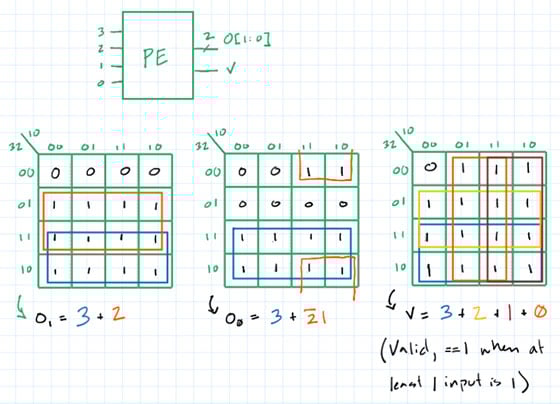 3
2
1
0
PE
2 O[1:0]
V
10
32 00 01 11 10
00 0 0 0 0
01 1 1 1 1
11 1 1 1 1
10 1 1 1 1
O₁ = 3 + 2
10
32 00 01 11 10
00 0 0 1 1
01 0 0 0 0
11 1 1 1 1
10 1 1 1 1
O₀ = 3 + 2̅1
10
32 00 01 11 10
00 0 1 1 1
01 1 1 1 1
11 1 1 1 1
10 1 1 1 1
V = 3 + 2 + 1 + 0
(Valid, ==1 when at
least 1 input is 1)